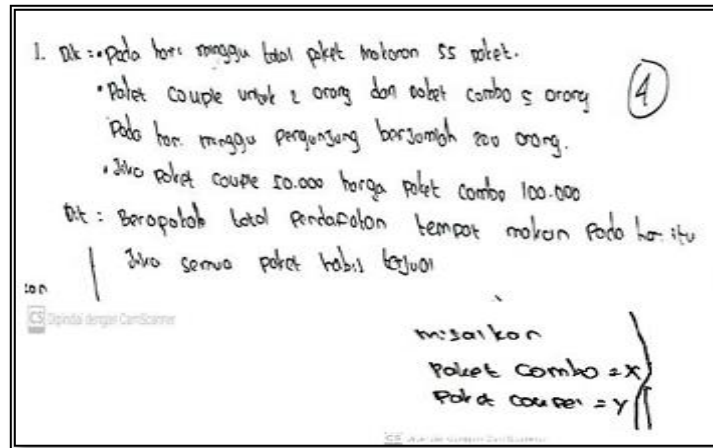 1. Dik : • Pada hari minggu total paket makanan 55 paket.
• Paket couple untuk 2 orang dan paket combo 5 orang
Pada hari minggu pengunjung berjumlah 200 orang.
• Jika paket couple 50.000 harga paket combo 100.000
Dit : Berapakah total pendapatan tempat makan pada hari itu
Jika semua paket habis terjual
4
CS Dipindai dengan CamScanner
misalkan
Paket Combo = X
Paket couper = Y